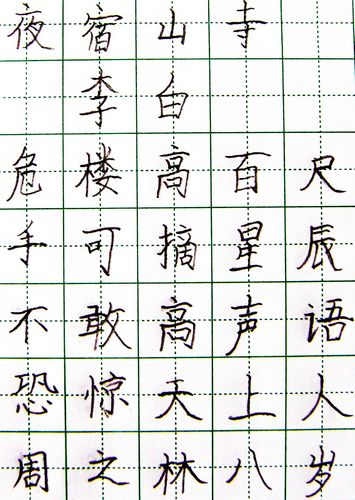 夜宿山寺
李白
危楼高百尺
手可摘星辰
不敢高声语
恐惊天上人
周之林八岁